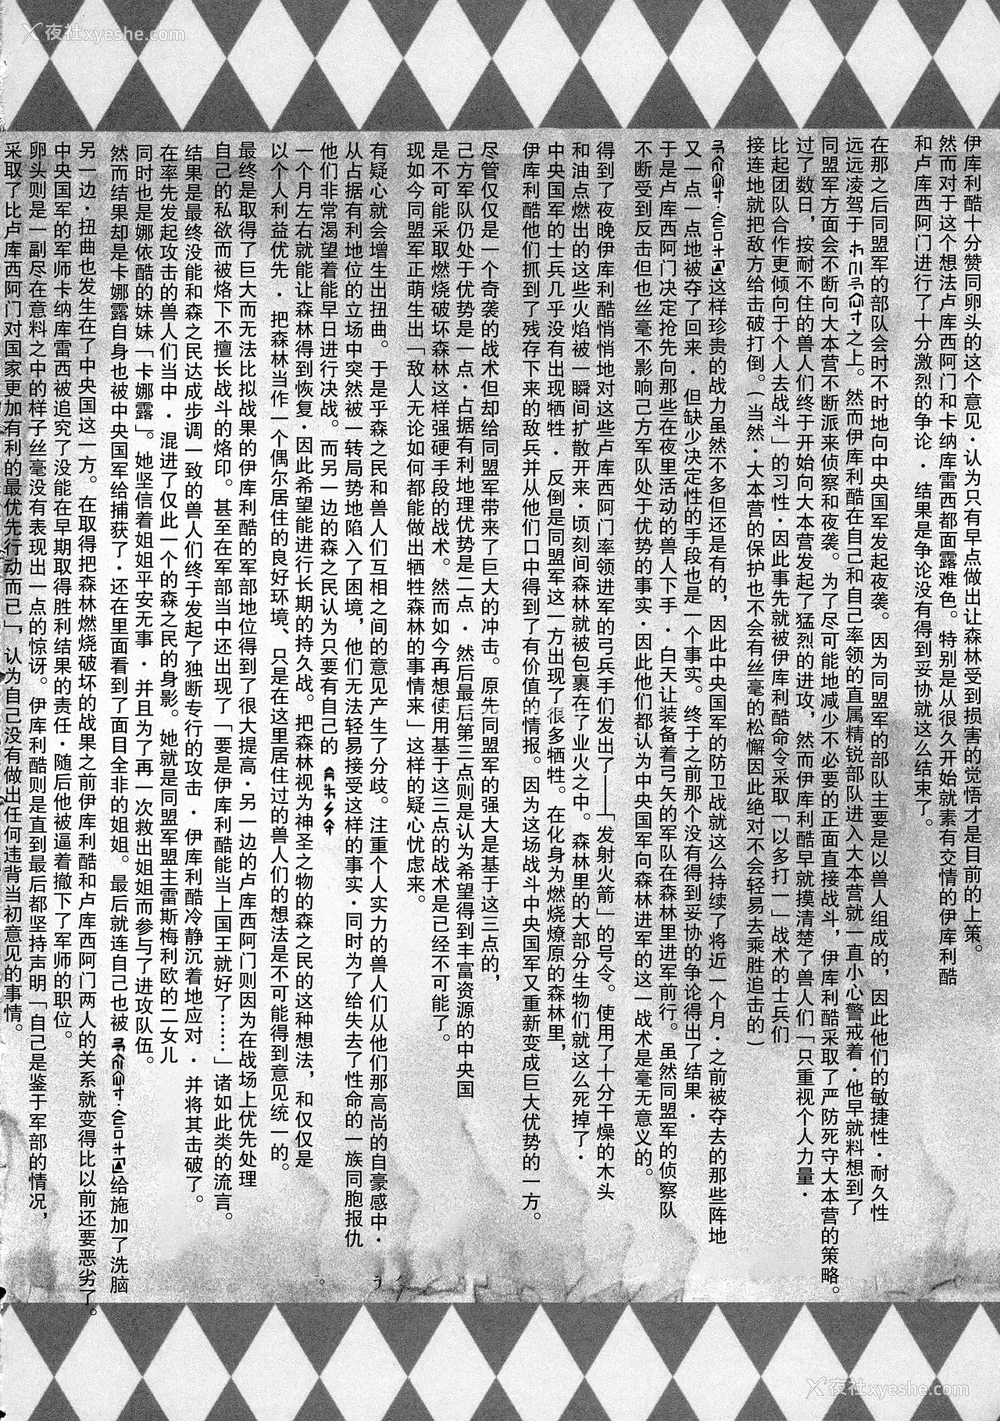 夜社xyeshe.com
伊库利酷十分赞同卵头的这个意见·认为只有早点做出让森林受到损害的觉悟才是目前的上策。
然而对于这个想法卢库西阿门和卡纳库雷西都面露难色。特别是从很久开始就素有交情的伊库利酷
和卢库西阿门进行了十分激烈的争论·结果是争论没有得到妥协就这么结束了。
在那之后同盟军的部队会时不时地向中央国军发起夜袭。因为同盟军的部队主要是以兽人组成的，因此他们的敏捷性·耐久性
远远凌驾于之上。然而伊库利酷在自己和自己率领的直属精锐部队进入大本营就一直小心警戒着·他早就料想到了
同盟军方面会不断向大本营不断派来侦察和夜袭。为了尽可能地减少不必要的正面直接战斗，伊库利酷采取了严防死守大本营的策略。
过了数日，按耐不住的兽人们终于开始向大本营发起了猛烈的进攻，然而伊库利酷早就摸清楚了兽人们「只重视个人力量·
比起团队合作更倾向于个人去战斗」的习性·因此事先就被伊库利酷命令采取「以多打一」战术的士兵们
接连地就把敌方给击破打倒。(当然·大本营的保护也不会有丝毫的松懈因此绝对不会轻易去乘胜追击的)
这样珍贵的战力虽然不多但还是有的，因此中央国军的防卫战就这么持续了将近一个月·之前被夺去的那些阵地
又一点一点地被夺了回来·但缺少决定性的手段也是一个事实。终于之前那个没有得到妥协的争论得出了结果·
于是卢库西阿门决定抢先向那些在夜里活动的兽人下手·白天让装备着弓矢的军队在森林里进军前行。虽然同盟军的侦察队
不断受到反击但也丝毫不影响己方军队处于优势的事实·因此他们都认为中央国军向森林进军的这一战术是毫无意义的。
得到了夜晚伊库利酷悄悄地对这些卢库西阿门率领进军的弓兵手们发出了——「发射火箭」的号令。使用了十分干燥的木头
和油点燃出的这些火焰被一瞬间扩散开来·顷刻间森林就被包裹在了业火之中。森林里的大部分生物们就这么死掉了·
中央国军的士兵几乎没有出现牺牲·反倒是同盟军这一方出现了很多牺牲。在化身为燃烧燎原的森林里，
伊库利酷他们抓到了残存下来的敌兵并从他们口中得到了有价值的情报。因为这场战斗中央国军又重新变成巨大优势的一方。
尽管仅仅是一个奇袭的战术但却给同盟军带来了巨大的冲击。原先同盟军的强大是基于这三点的，
己方军队仍处于优势是一点·占据有利地理优势是二点·然后最后第三点则是认为希望得到丰富资源的中央国
是不可能采取燃烧破坏森林这样强硬手段的战术。然而如今再想使用基于这三点的战术是已经不可能了。
现如今同盟军正萌生出「敌人无论如何都能做出牺牲森林的事情来」这样的疑心忧虑来。
有疑心就会增生出扭曲。于是乎森之民和兽人们互相之间的意见产生了分歧。注重个人实力的兽人们从他们那高尚的自豪感中·
从占据有利地位的立场中突然被一转局势地陷入了困境，他们无法轻易接受这样的事实·同时为了给失去了性命的一族同胞报仇
他们非常渴望着能早日进行决战。而另一边的森之民认为只要有自己的
一个月左右就能让森林得到恢复·因此希望能进行长期的持久战。把森林视为神圣之物的森之民的这种想法，和仅仅是
以个人利益优先·把森林当作一个偶尔居住的良好环境、只是在这里居住过的兽人们的想法是不可能得到意见统一的。
最终是取得了巨大而无法比拟战果的伊库利酷的军部地位得到了很大提高·另一边的卢库西阿门则因为在战场上优先处理
自己的私欲而被烙下不擅长战斗的烙印。甚至在军部当中还出现了「要是伊库利酷能当上国王就好了……」诸如此类的流言。
结果是最终没能和森之民达成步调一致的兽人们终于发起了独断专行的攻击·伊库利酷冷静沉着地应对·并将其击破了。
在率先发起攻击的兽人们当中·混进了仅此一个的森之民的身影。她就是同盟军盟主雷斯梅利欧的二女儿
同时也是娜依酷的妹妹「卡娜露」。她坚信着姐姐平安无事·并且为了再一次救出姐姐而参与了进攻队伍。
然而结果却是卡娜露自身也被中央国军给捕获了·还在里面看到了面目全非的姐姐。最后就连自己也被给施加了洗脑
另一边·扭曲也发生在了中央国这一方。在取得把森林燃烧破坏的战果之前伊库利酷和卢库西阿门两人的关系就变得比以前还要恶劣了。
中央国军的军师卡纳库雷西被追究了没能在早期取得胜利结果的责任·随后他被逼着撤下了军师的职位。
卵头则是一副尽在意料之中的样子丝毫没有表现出一点的惊讶。伊库利酷则是直到最后都坚持声明「自己是鉴于军部的情况，
采取了比卢库西阿门对国家更加有利的最优先行动而已」，认为自己没有做出任何违背当初意见的事情。
夜社xyeshe.com